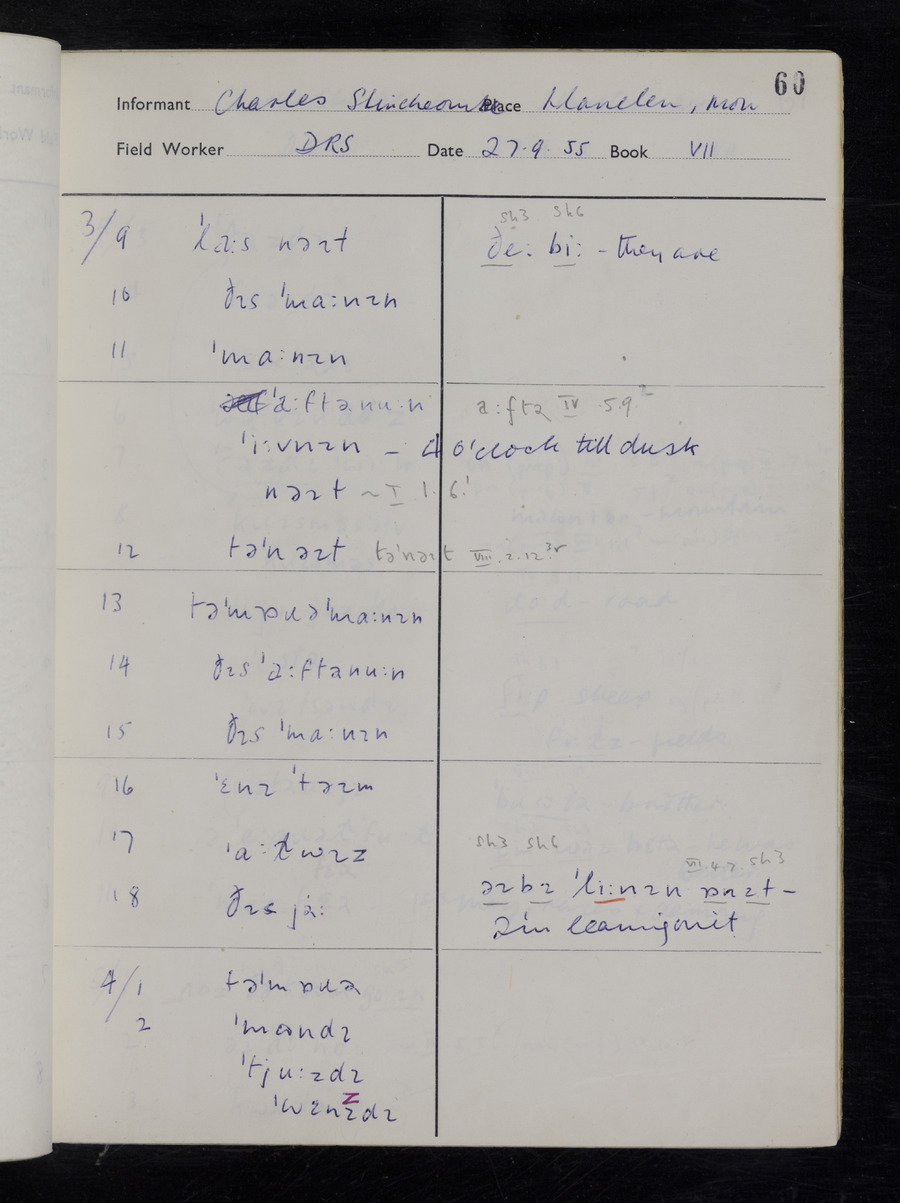 60
Informant Charles Stinchcombe Place Llanelen, Mon
Field Worker DRS Date 27.9.55 Book VII
3/9 ˈlaːs nəɪt
sh3 sh6
ðeː biː - they are
10 ðɪs ˈmaːnɪn
11 ˈmaːnɪn
ˈaːftənuːn
aːftə IV .5.9²
ˈiːvnɪn – 4 o'clock till dusk
nəɪt ~ I 1.6.¹
12 təˈnəɪt təˈnəɪt VIII.2.12
13 təˈmɒɹəˈmaːnɪn
14 ðɪs ˈaːftənuːn
15 ðɪs ˈmaːnɪn
16 ˈɛnɪ ˈtəɪm
17 ˈaːɫwɪz
18 ðɪs jəː
sh3 sh6
VII 4.2 sh3
əɪbɪ ˈliːnɪn ɒnɪt –
I'm leaning on it
4/1 təˈmɒɹə
2 ˈmʌndɪ
ˈtjuːzdɪ
z
ˈwɛnzdɪ